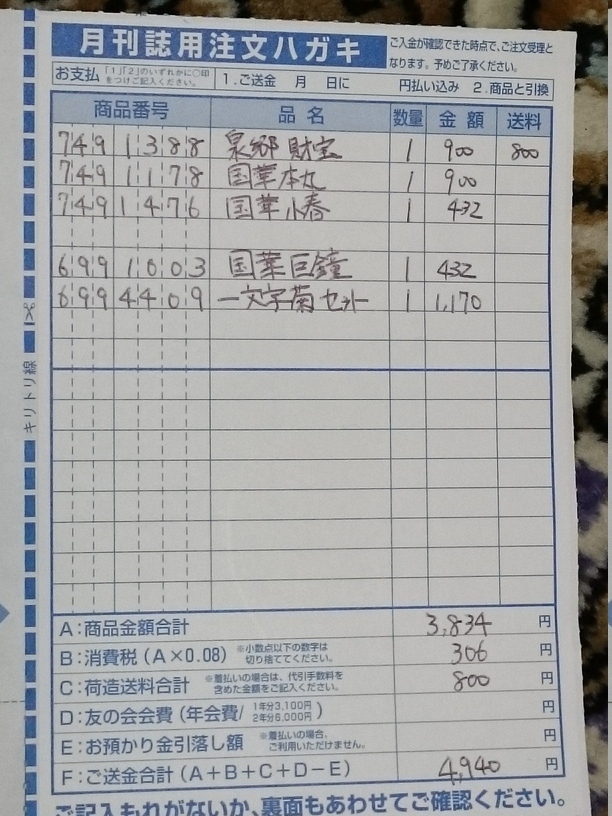 月刊誌用注文ハガキ
ご入金が確認できた時点で、ご注文受理と
なります。予めご了承ください。
お支払 「1」「2」のいずれかに○印をつけご記入ください。 1.ご送金 月 日に 円払い込み 2.商品と引換
商品番号 品名 数量 金額 送料
749 1388 泉郷財宝 1 900 800
749 1178 国華本丸 1 900
749 1476 国華小春 1 432
699 1003 国華巨鐘 1 432
699 4409 一文字菊セット 1 1,170
キリトリ線
A:商品金額合計 3,834 円
B:消費税(A×0.08) ※小数点以下の数字は切り捨ててください。 306 円
C:荷造送料合計 ※着払いの場合は、代引手数料を含めた金額をご記入ください。 800 円
D:友の会会費(年会費/1年分3,100円 2年分6,000円) 円
E:お預かり金引落し額 ※着払いの場合、ご利用いただけません。 円
F:ご送金合計(A+B+C+D-E) 4,940 円
ご記入もれがないか、裏面もあわせてご確認ください。